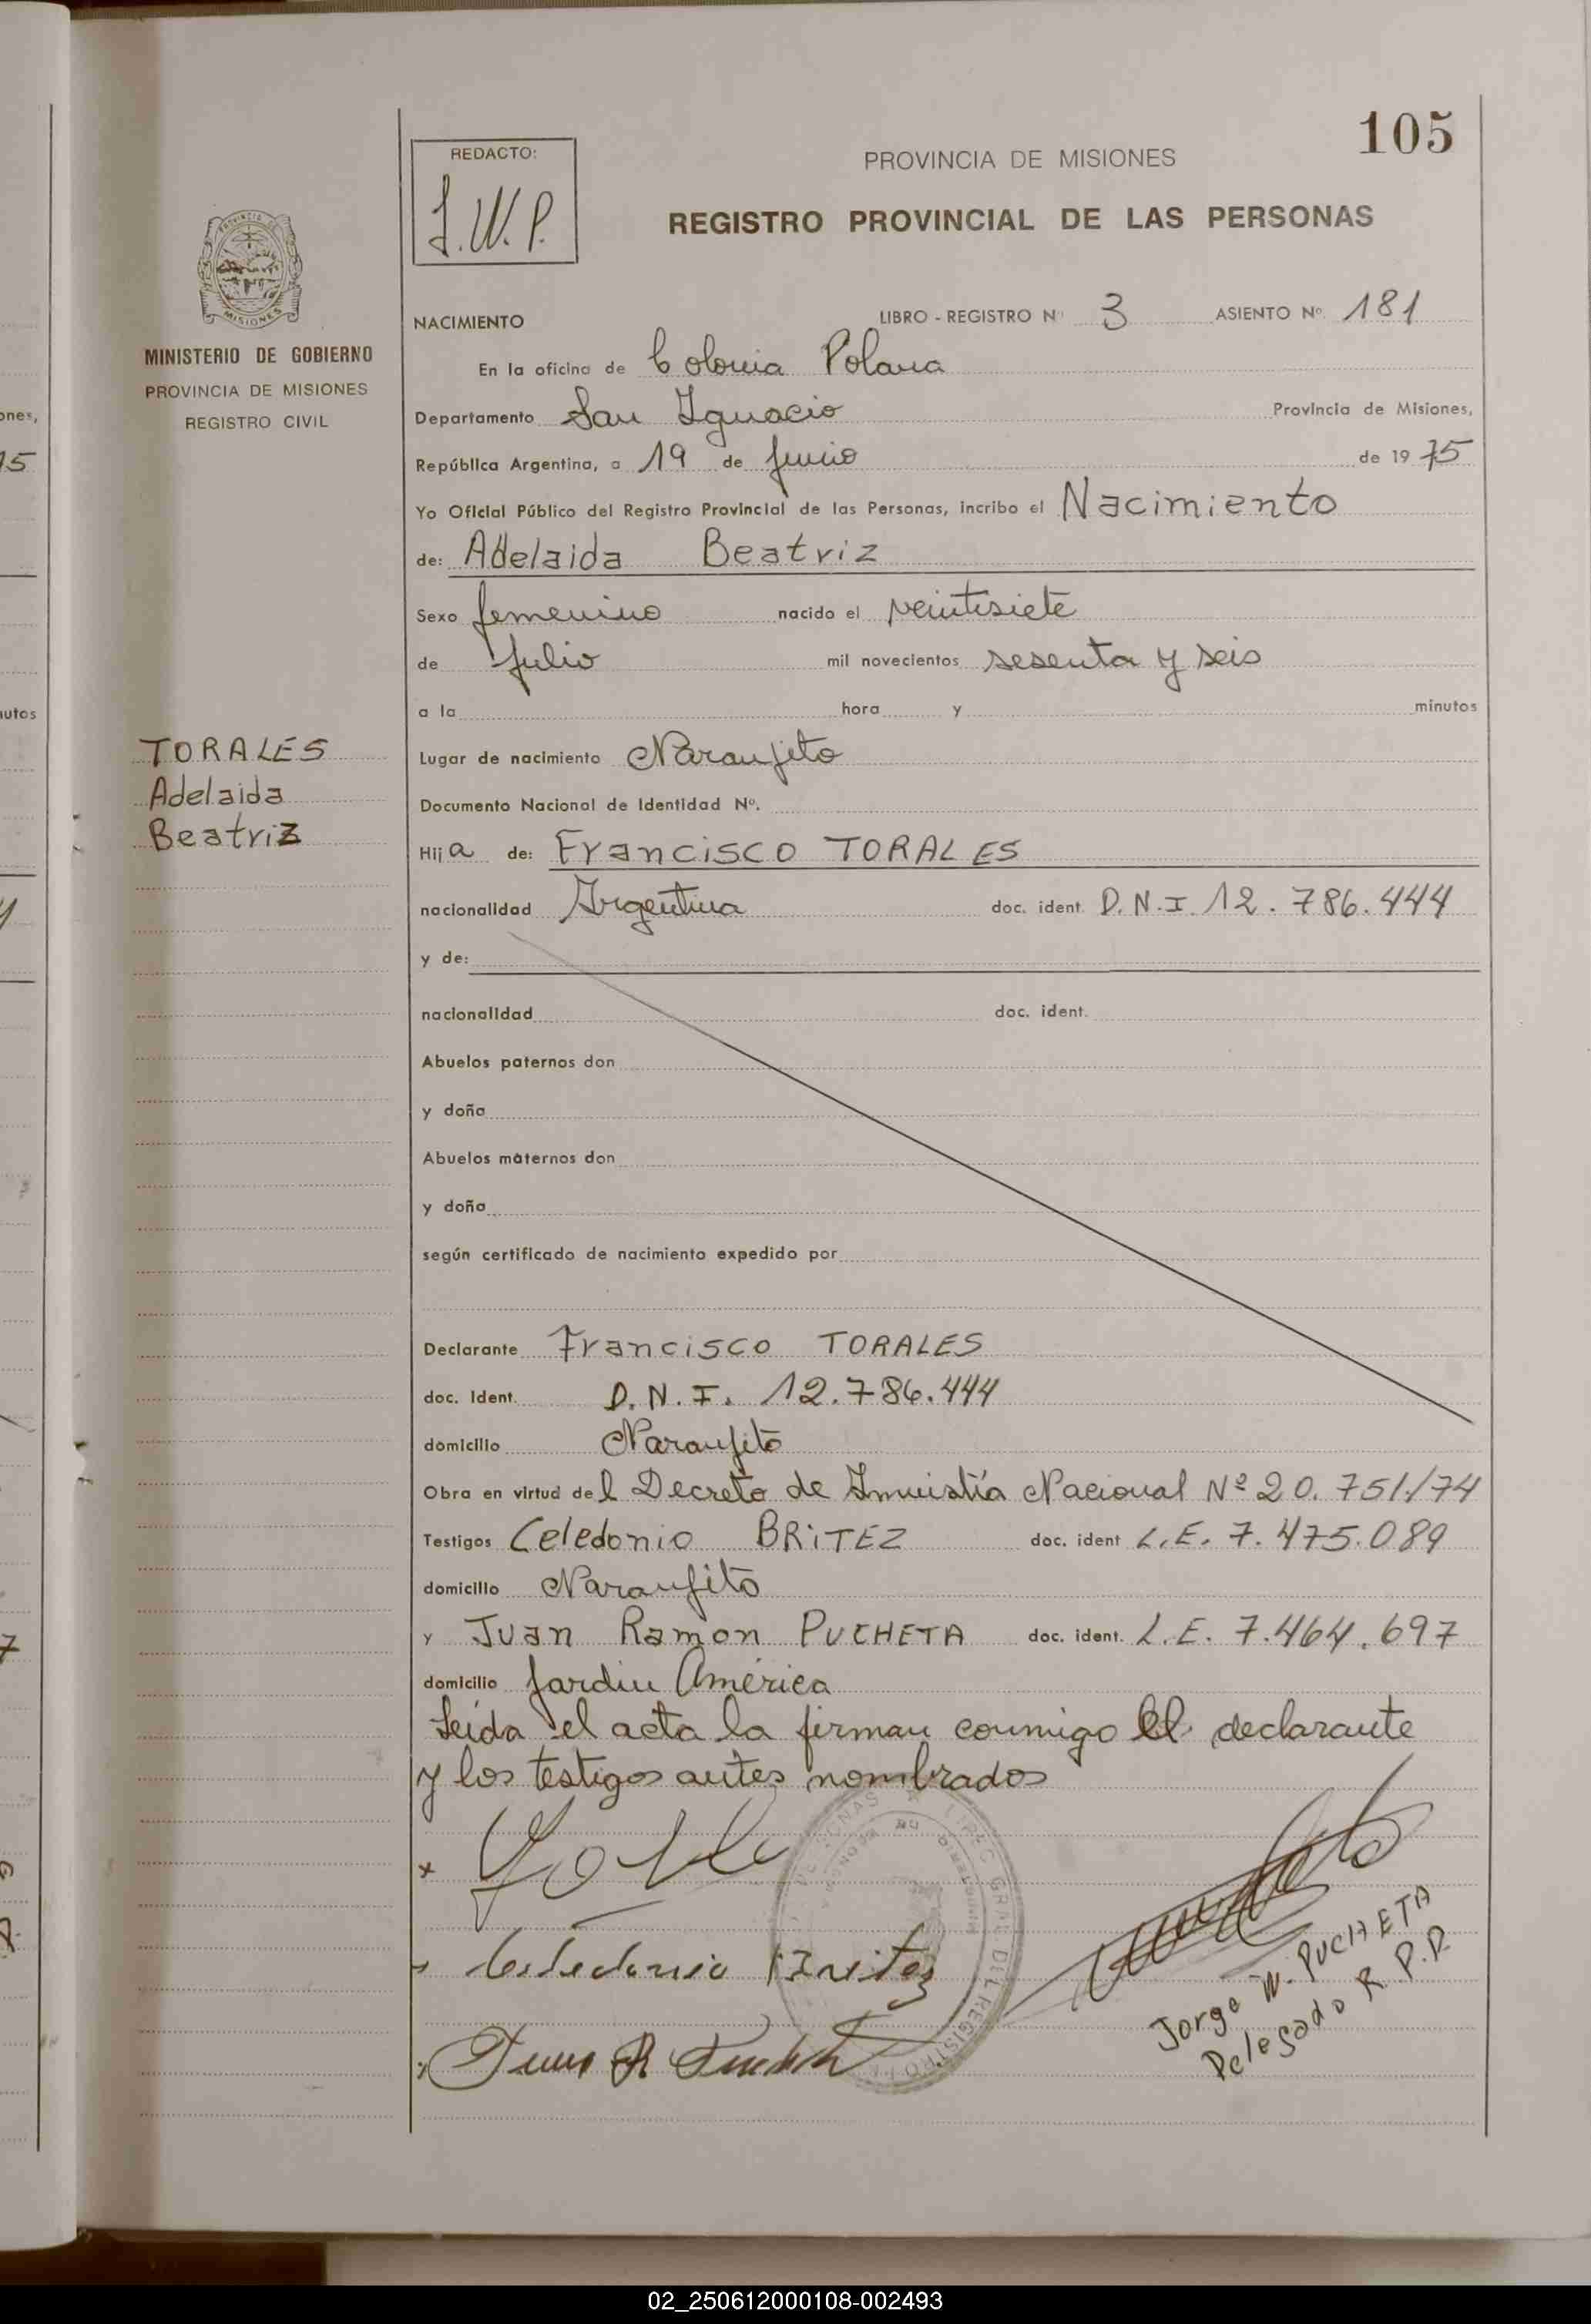 105
REDACTO:
J.W.P.
PROVINCIA DE MISIONES
REGISTRO PROVINCIAL DE LAS PERSONAS
MISIONES
MINISTERIO DE GOBIERNO
PROVINCIA DE MISIONES
REGISTRO CIVIL
NACIMIENTO LIBRO - REGISTRO Nº 3 ASIENTO Nº 181
En la oficina de Colonia Polana
Departamento San Ignacio Provincia de Misiones,
República Argentina, a 19 de Junio de 1975
Yo Oficial Público del Registro Provincial de las Personas, incribo el Nacimiento
de: Adelaida Beatriz
Sexo femenino nacido el veintisiete
de Julio mil novecientos sesenta y seis
a la hora y minutos
TORALES
Adelaida
Beatriz
Lugar de nacimiento Naranjito
Documento Nacional de Identidad Nº.
Hija de: Francisco TORALES
nacionalidad Argentina doc. ident. D.N.I. 12.786.444
y de:
nacionalidad doc. ident.
Abuelos paternos don
y doña
Abuelos maternos don
y doña
según certificado de nacimiento expedido por
Declarante Francisco TORALES
doc. Ident. D.N.I. 12.786.444
domicilio Naranjito
Obra en virtud del Decreto de Amnistía Nacional Nº 20.751/74
Testigos Celedonio BRITEZ doc. ident L.E. 7.475.089
domicilio Naranjito
y Juan Ramon PUCHETA doc. ident. L.E. 7.464.697
domicilio Jardin América
Leída el acta la firman conmigo el declarante
y los testigos antes nombrados
x
Celedonio Britez
Juan R Pucheta
Jorge W. PUCHETA
Delegado R.P.P.
02_250612000108-002493